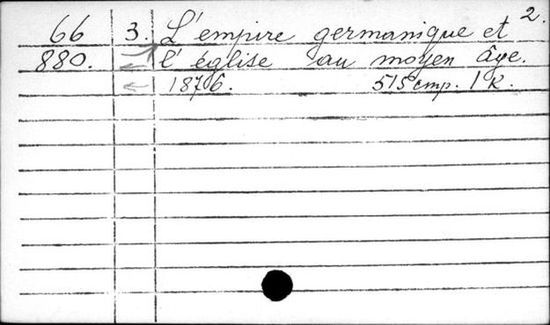 2.
66 3. L'empire germanique et
880. l'église au moyen âge.
1876. 515 стр. 1 к.